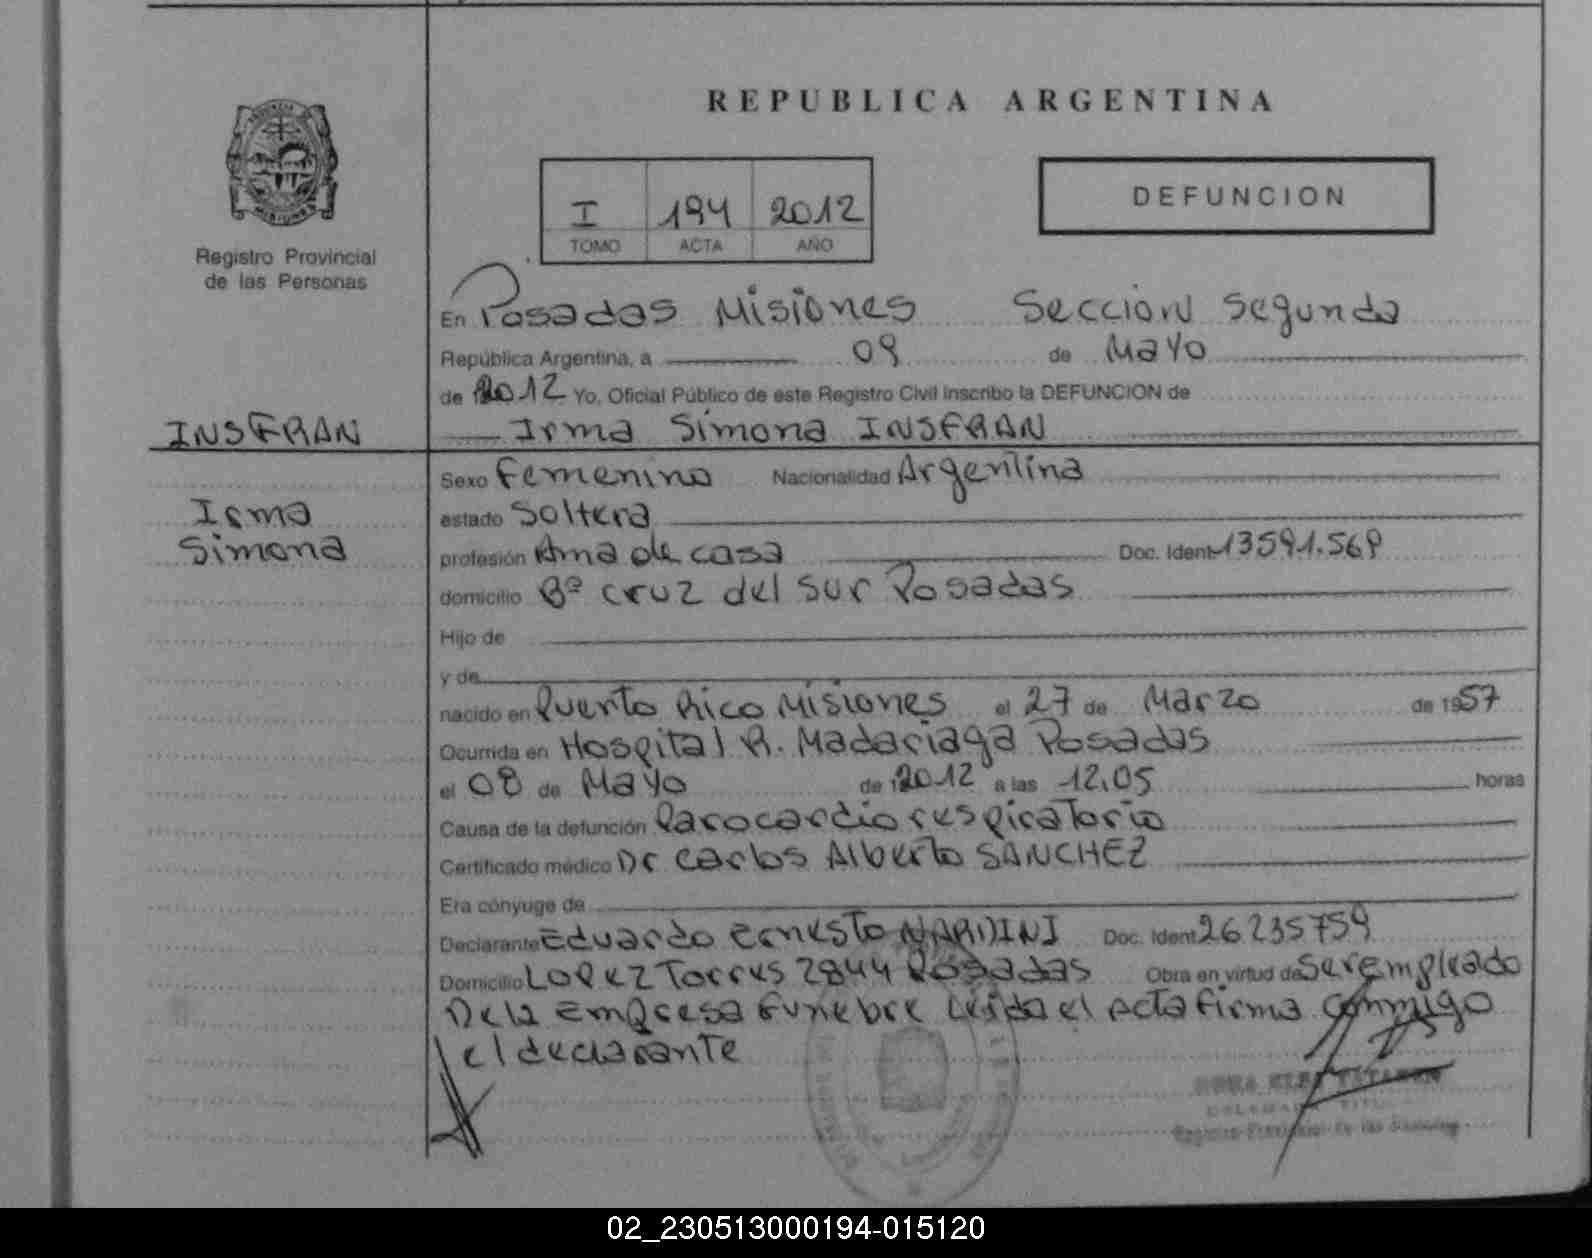 REPUBLICA ARGENTINA
I 194 2012
TOMO ACTA AÑO
DEFUNCION
Registro Provincial
de las Personas
En Posadas Misiones Seccion Segunda
República Argentina, a 09 de Mayo
de 2012 Yo, Oficial Público de este Registro Civil Inscribo la DEFUNCION de
INSFRAN
Irma Simona INSFRAN
Irma
Simona
Sexo Femenino Nacionalidad Argentina
estado Soltera
profesión Ama de casa Doc. Ident 13591.569
domicilio Bº cruz del sur Posadas
Hijo de
y de
nacido en Puerto Rico Misiones el 27 de Marzo de 1957
Ocurrida en Hospital R. Madariaga Posadas
el 08 de Mayo de 2012 a las 12,05 horas
Causa de la defunción Parocardiorespiratorio
Certificado médico Dr Carlos Alberto SANCHEZ
Era cónyuge de
Declarante Eduardo Ernesto NARDINI Doc. Ident 26235759
Domicilio Lopez Torres 2844 Posadas Obra en virtud de ser empleado
De la Empresa Funebre Leida el Acta firma conmigo
el declarante
Registro Provincial de las Personas
02_230513000194-015120